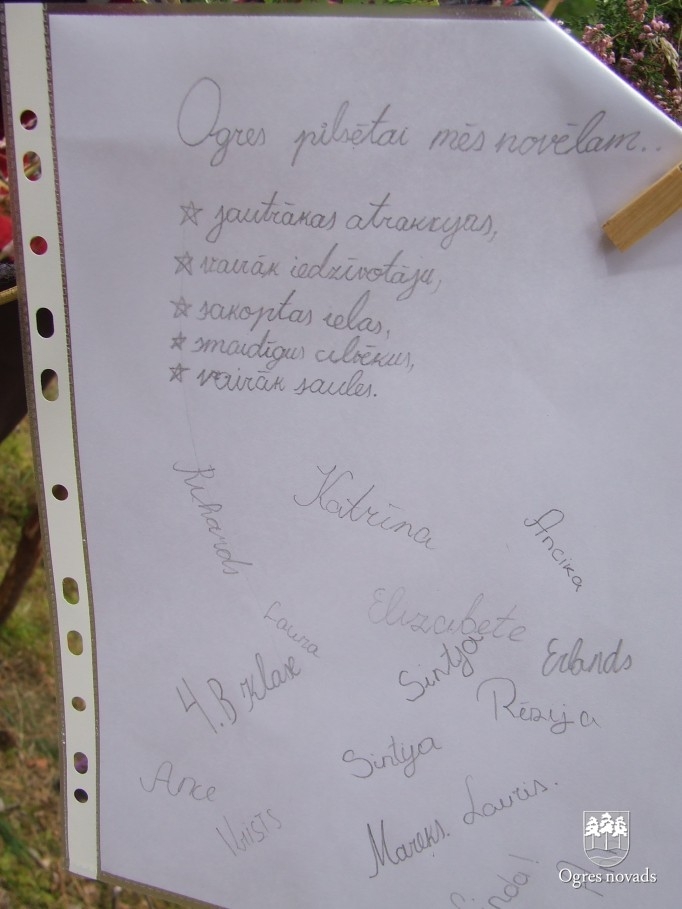 Ogres pilsētai mēs novēlam..
☆ jautrākas atrakcijas,
☆ vairāk iedzīvotāju,
☆ sakoptas ielas,
☆ smaidīgus cilvēkus,
☆ vairāk saules.
Richards
Katrīna
Ancika
Laura
Elizabete
Erlands
4.B klase
Sintija
Rēzija
Sintija
Ance
Krists
Mareks.
Lauris.
Ogres novads